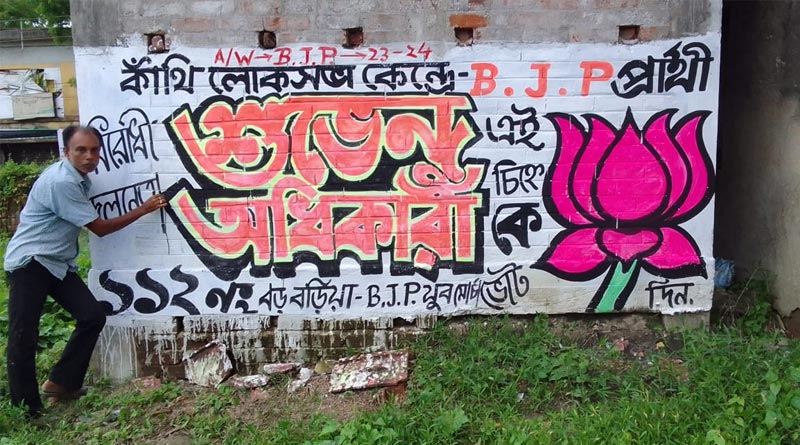 A/W→B.J.P→23-24
কাঁথি লোকসভা কেন্দ্রে-B.J.P প্রার্থী
বিরোধী
দলনেতা
শুভেন্দু
অধিকারী
এই
চিহ্নে
কে
ভোট
দিন.
১১২ নং বড় বড়িয়া-B.J.P. যুব মোর্চা